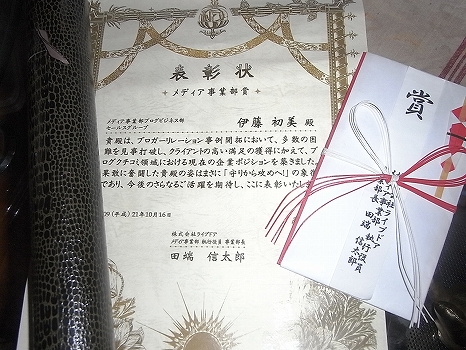 表彰状
メディア事業部賞
メディア事業部ブログビジネス部
セールスグループ
伊藤 初美 殿
貴殿は、ブロガーリレーション事例開拓において、多数の困
難を見事打破し、クライアントの高い満足の獲得にかえて、ブ
ログクチコミ領域における現在の企業ポジションを築きました。
果敢に奮闘した貴殿の姿はまさに「守りから攻めへ!」の象
であり、今後のさらなるご活躍を期待し、ここに表彰いたし
09(平成)21年10月16日
株式会社ライブドア
メディア事業部 執行役員 事業部長
田端 信太郎
賞
執行役員
事業部長 田端 信太郎